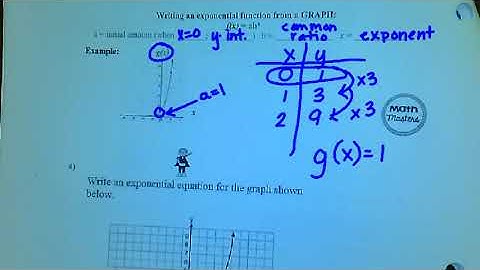 Writing an exponential function from a GRAPH:
f(x) = abˣ
a = initial amount (when x=0; y int.) b = common ratio x = exponent
Example:
g(x)
x y
0 1
1 3
2 9
x3
x3
a=1
x
Math
Masters
g(x)=1
Write an exponential equation for the graph shown
below.